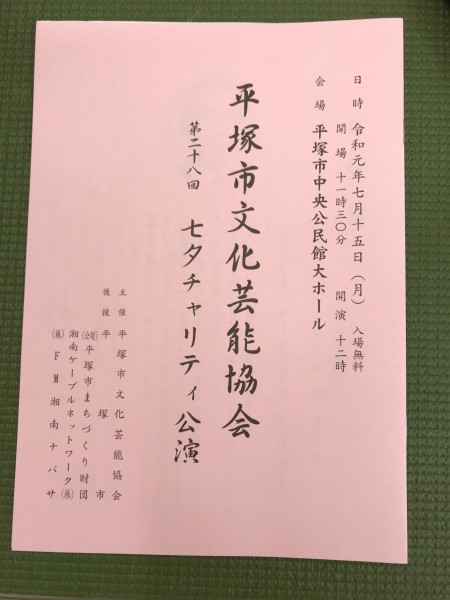 日時 令和元年七月十五日(月) 入場無料
開場 十一時三〇分 開演 十二時
会場 平塚市中央公民館大ホール
平塚市文化芸能協会
第二十八回 七夕チャリティ公演
主催 平塚市文化芸能協会
後援 平塚市
(公財)平塚市まちづくり財団
湘南ケーブルネットワーク(株)
(株)FM湘南ナパサ